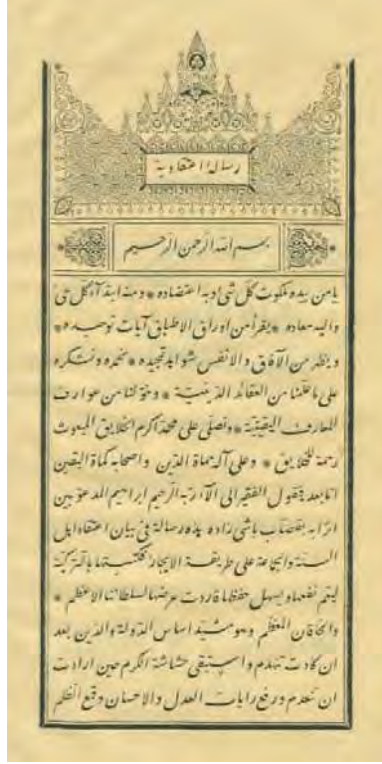 رسالة اعتقادية
بسم الله الرحمن الرحيم
يا من بيده ملكوت كل شئ وبه اعتضاده * ومنه ابتدآء كل حى
واليه معاده * يقرأ من اوراق الاطباق آيات توحيده *
وينظر من الآفاق والانفس شواهد تمجيده * نحمده ونشكره
على ما علمنا من العقائد الدينية * وخولنا من عوارف
المعارف اليقينية * ونصلى على محمد اكرم الخلايق المبعوث
رحمة للخلايق * وعلى آله حماة الدين واصحابه كماة اليقين
اما بعد فيقول الفقير الى آلآء ربه الرحيم ابراهيم المدعو بين
اترابه بقصاب باشى زاده هذه رسالة فى بيان اعتقاد اهل
السنة والجماعة على طريقة الايجاز فكتبتها بالتركية
ليتم نفعها ويسهل حفظها فاردت عرضها لسلطاننا الاعظم *
والخاقان المعظم وهو مشيد اساس الدولة والدين بعد
ان كادت تنهدم واستبقى حشاشة الكرم حين ارادت
ان تنعدم ورفع رايات العدل والاحسان وقمع الظلم